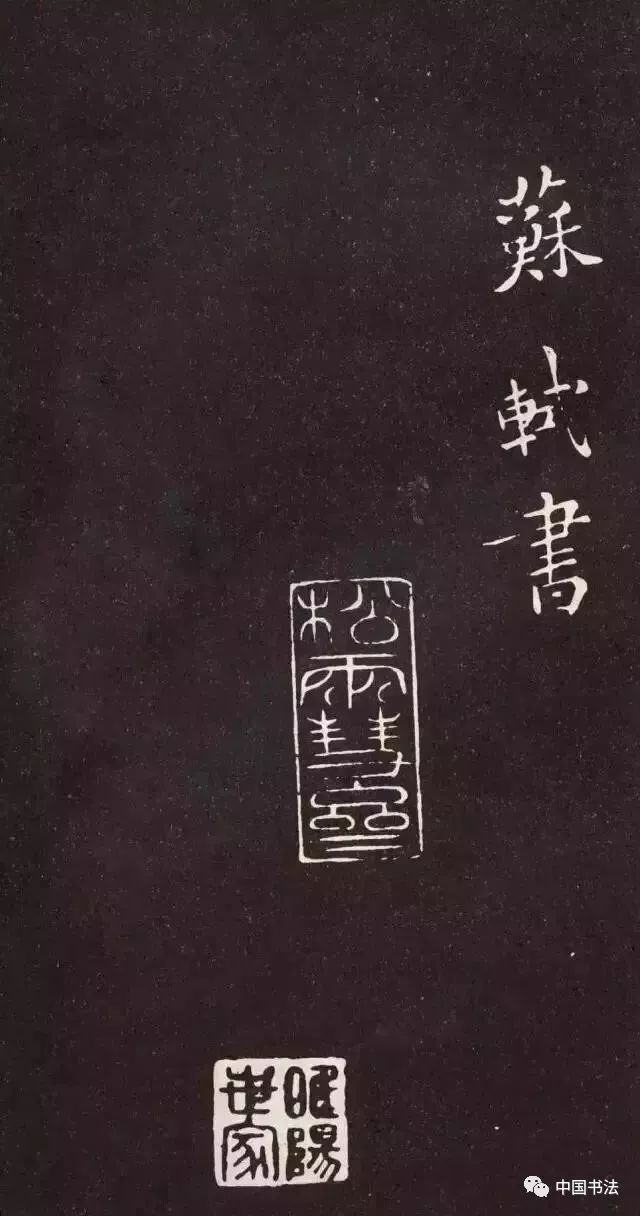 蘇軾書
松雪
睢陽
世家
中国书法